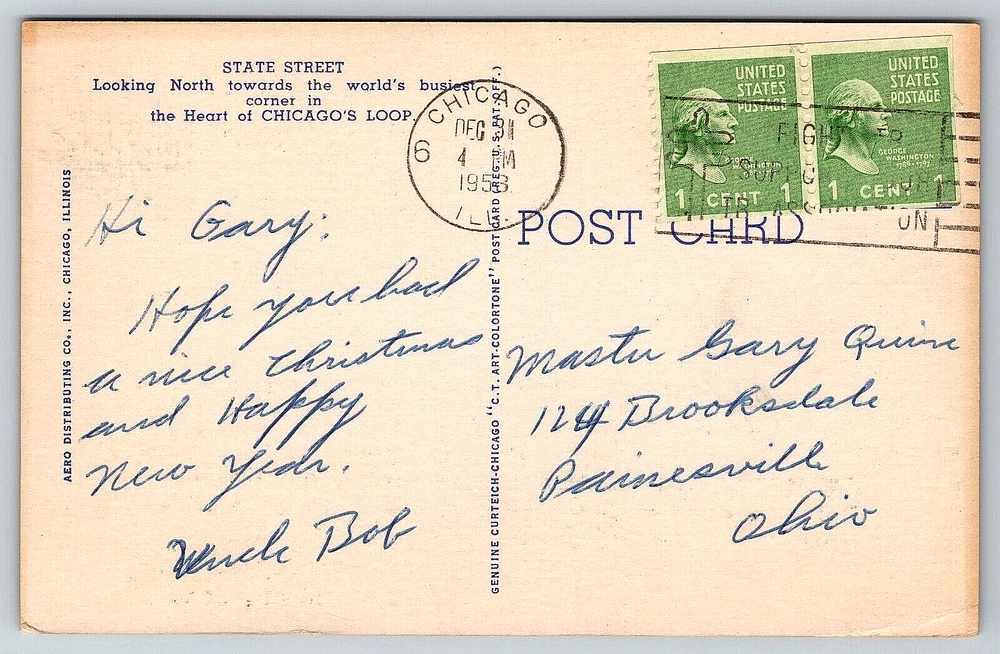 STATE STREET
Looking North towards the world's busiest
corner in
the Heart of CHICAGO'S LOOP.
AERO DISTRIBUTING CO., INC., CHICAGO, ILLINOIS
Hi Gary:
Hope you had
a nice Christmas
and Happy
New Year.
Uncle Bob
GENUINE CURTEICH-CHICAGO "C.T. ART-COLORTONE" POST CARD (REG. U.S. PAT. OFF.)
CHICAGO
DEC
4 PM
1953
ILL.
6
UNITED
STATES
POSTAGE
GEORGE
WASHINGTON
1 CENT 1
UNITED
STATES
POSTAGE
GEORGE
WASHINGTON
1789-1797
1 CENT 1
FIGHT TB
POST CARD
Master Gary
124 Brooksdale
Painesville
Ohio